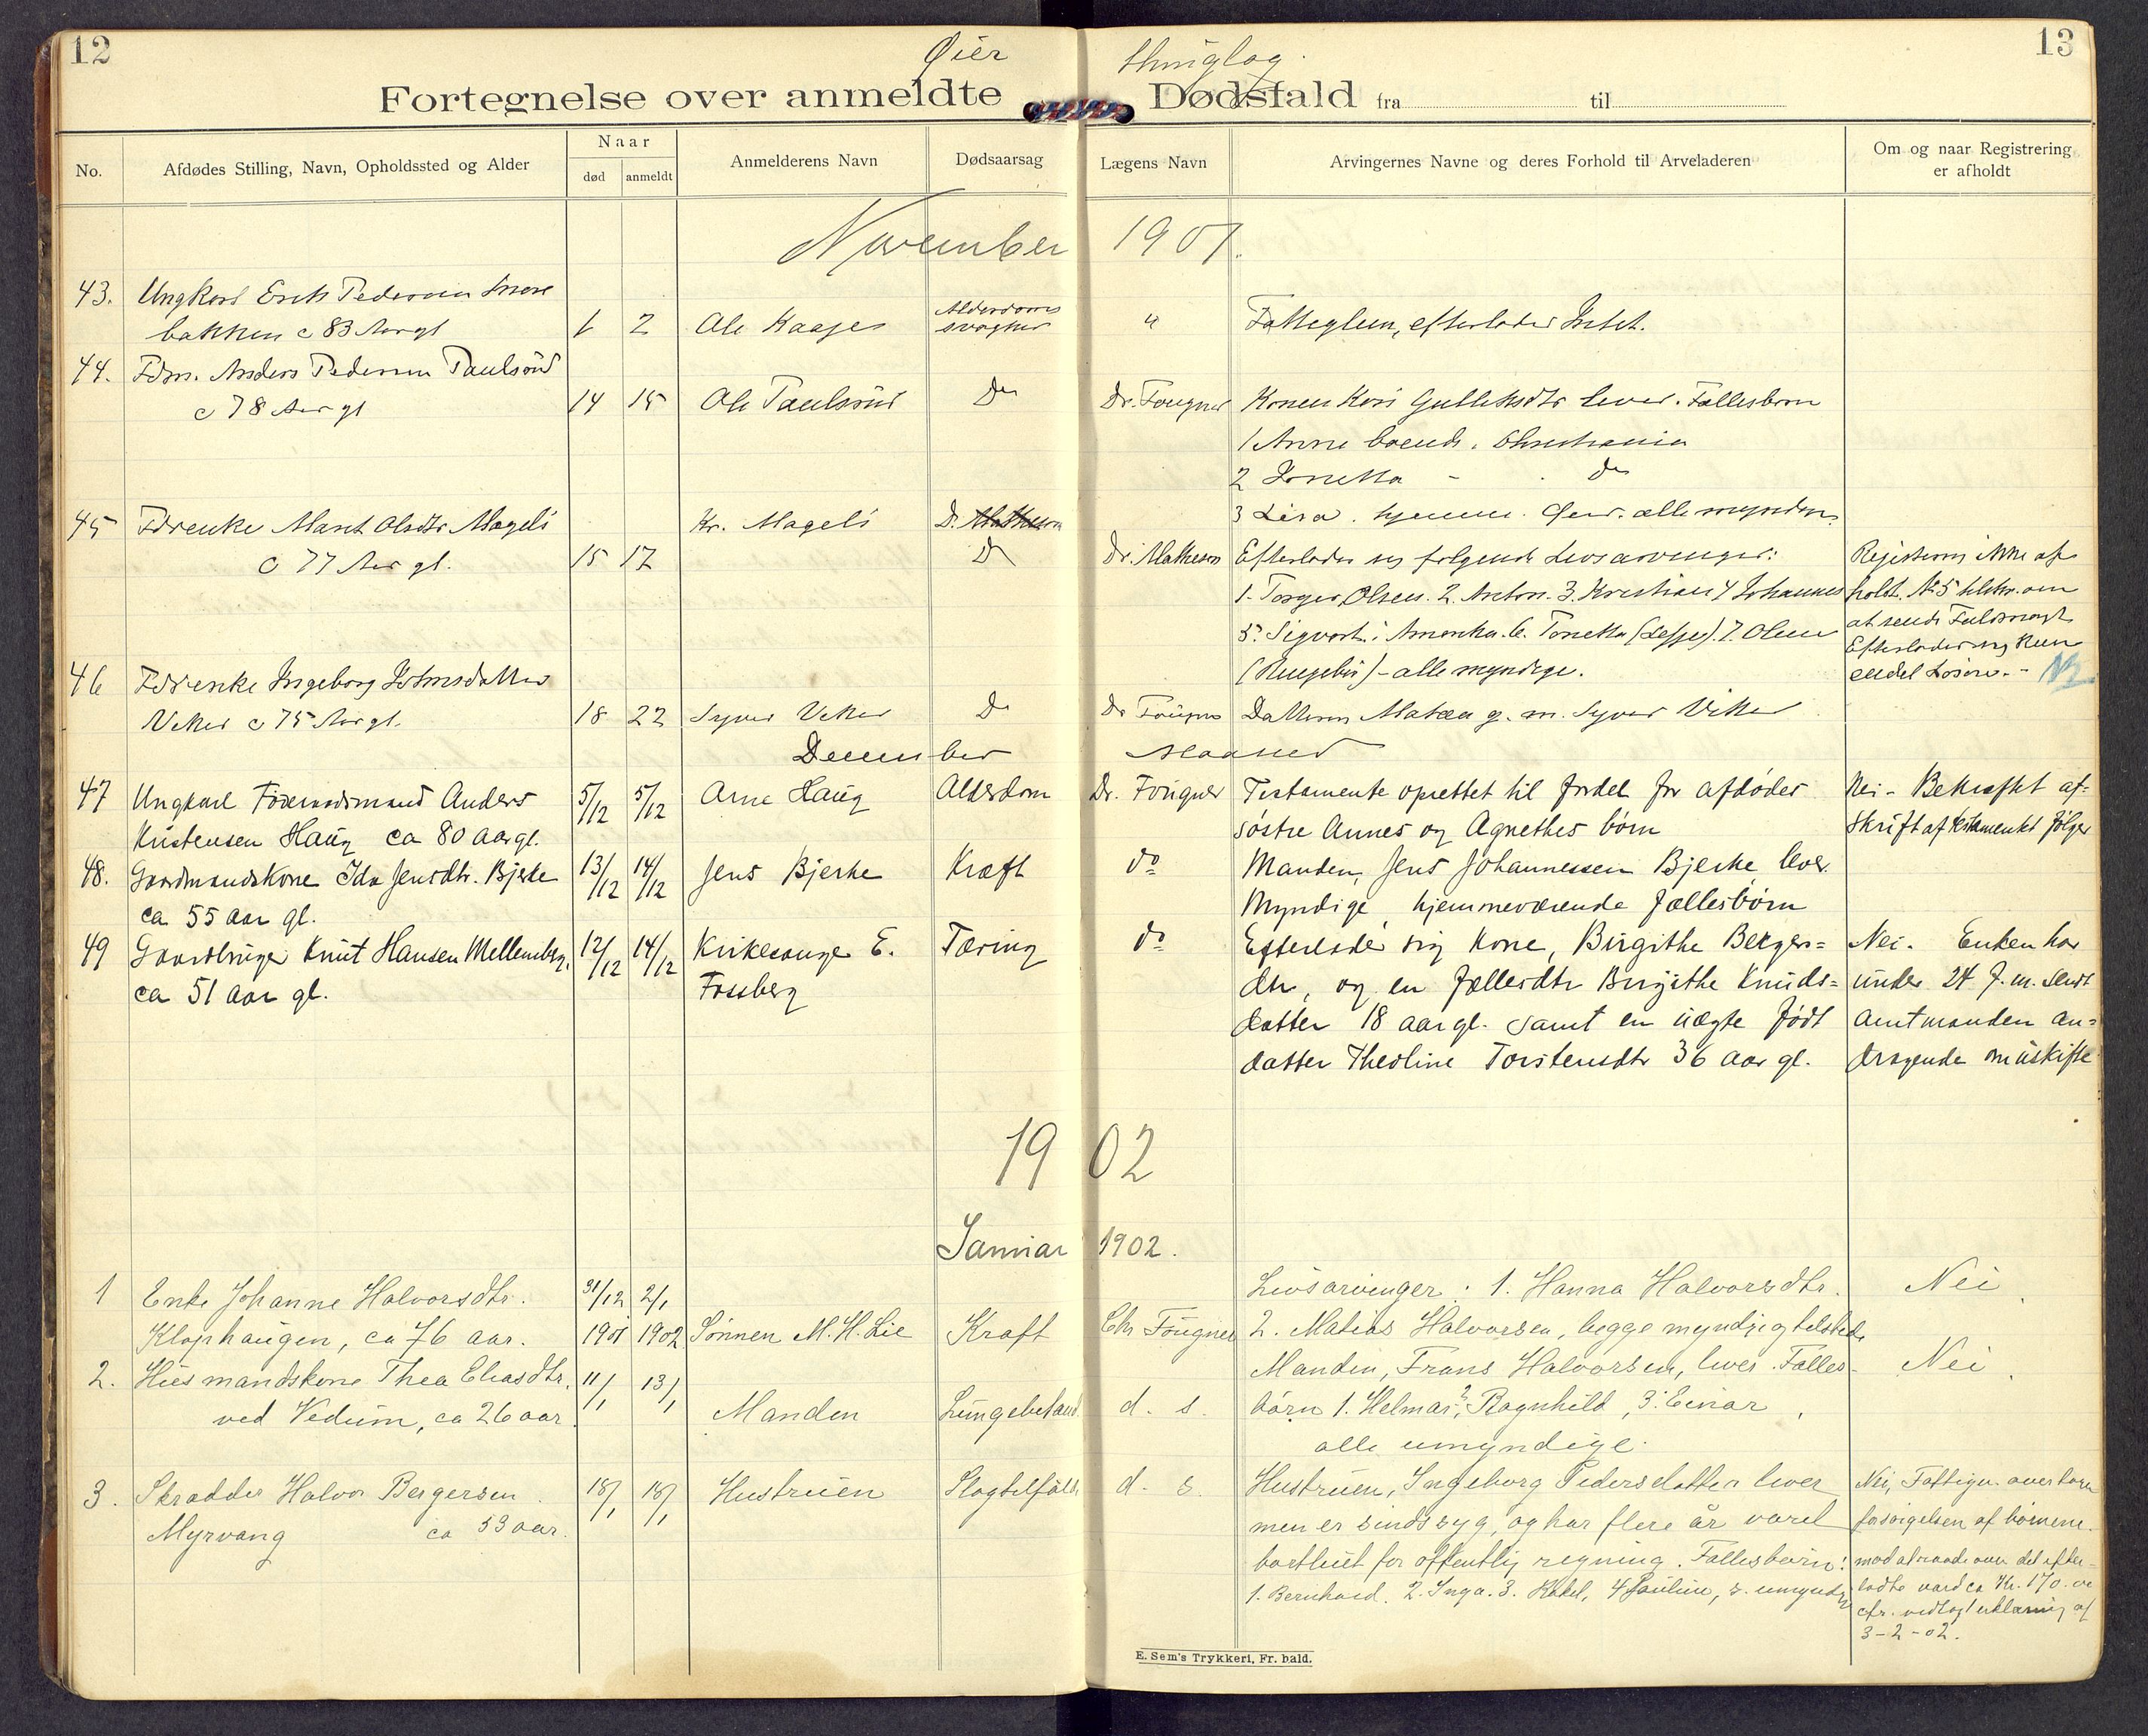 12
Øier
Fortegnelse over anmeldte
thinglag.
Dødsfald fra til
13
No.
Afdødes Stilling, Navn, Opholdssted og Alder
Naar
død
anmeldt
Anmelderens Navn
Dødsaarsag
Lægens Navn
Arvingernes Navne og deres Forhold til Arveladeren
Om og naar Registrering
er afholdt
November 1901.
43. Ungkarl Erik Pedersen
bakken c 83 Aar gl 1 2 Ole Kaage Alderdoms
svaghed " efterlader Intet.
44. Fdm. Anders Pedersen Paulsrud
c 78 Aar gl 14 15 Ole Paulsrud Do Dr. Fougner Konen Kari lever. Fællesbørn
1 Anne boende i Christiania
2 Jonetta - Do
3 Lisa. hjemme. alle myndige.
45 Fdrenke Marit Olsdtr Mageli Kr. Mageli
c 77 Aar gl. 15 17 Do Dr. Matheson Efterlader sig følgende Livsarvinger:
1. Torger Olsen. 2. Anton. 3. Kristian 4 Johannes
5. Sigvart i Amerika. 6. Tonetta 7. Oline
(Ringebu) - alle myndige.
Registrering ikke af-
holdt. No 5
at sende Fuldmagt
Efterlader sig kun
endel Løsøre. -
46 Fdrenke Ingeborg Johnsdatter
Veker c 75 Aar gl. 18 22 Syver Veker Do Dr Fougner Datteren Matea g. m. Syver Veker
December Maaned
47 Ungkarl Føderaadsmand Anders 5/12 5/12 Arne Haug Alderdom Dr. Fougner Testamente oprettet til fordel for afdødes Nei - Bekræftet af-
Kristensen Haug ca 80 aar gl. søstre Annes og Agnethes børn skrift af testamentet følger
48. Gaardmandskone Ida Jensdtr. Bjerke 13/12 14/12 Jens Bjerke Kræft do Manden, Jens Johannessen Bjerke, lever.
ca 55 aar gl. Myndige, hjemmeværende fællesbørn
49 Gaardbruger Knut Hansen Mellemberg, 12/12 14/12 Kirkesanger E. Tæring do Efterlader sig kone, Birgithe Berger= Nei. Enken har
ca 51 aar gl. Fossberg dtr, og en fællesdtr Birgithe Knuds= under 24 f. m. sendt
datter 18 aar gl. samt en uægte født Amtmanden an=
datter Theoline Torstensdtr 36 aar gl. dragende om uskifte
1902
Januar 1902.
1 Enke Johanne Halvorsdtr. 31/12 2/1 Livsarvinger: 1. Hanna Halvorsdtr. Nei
Klophaugen, ca 76 aar. 1901 1902 Sønnen M. H. Lie Kræft Chr Fougner 2. Matias Halvorsen, begge myndige og tilstede
2. Husmandskone Thea Eliasdtr. 11/1 13/1 Manden, Frans Halvorsen, lever. Fælles- Nei
ved Vedum, ca 26 aar Manden Lungebetænd. d. s. børn 1. Helmar, 2. Ragnhild, 3. Einar,
alle umyndige.
3. Skrædder Halvor Bergersen 18/1 18/1 Hustruen Slagtilfælde d. s. Hustruen, Ingeborg Pedersdatter lever
Myrvang ca 53 aar. men er sindssyg, og har flere år været
bortleiet for offentlig regning. Fællesbørn:
1. Bernhard. 2. Inga. 3. Rakel, 4 Pauline, 2. umyndig
Nei, Fattigv. overtaar
forsørgelsen af børnene.
mod at raade over det efter-
ladte værd ca Kr. 170.
cfr. vedlagt erklæring af
3-2-02.
E. Sem's Trykkeri, Fr. hald.